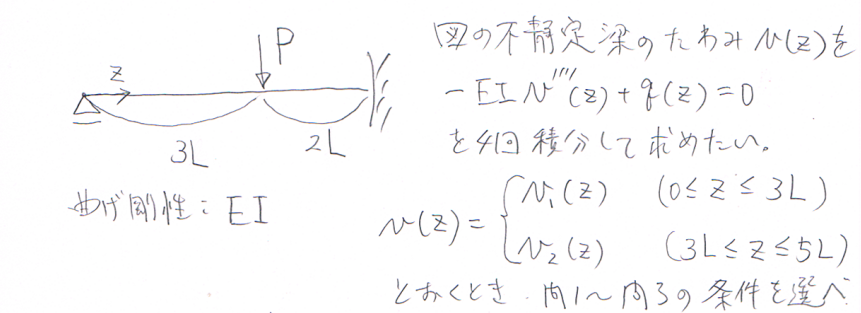 図の不静定梁のたわみ v(z)を
-EI v''''(z) + q(z) = 0
を4回積分して求めたい。
P
z
3L
2L
曲げ剛性: EI
v(z) = { v₁(z) (0 ≤ z ≤ 3L)
v₂(z) (3L ≤ z ≤ 5L)
とおくとき、問1〜問3の条件を選べ